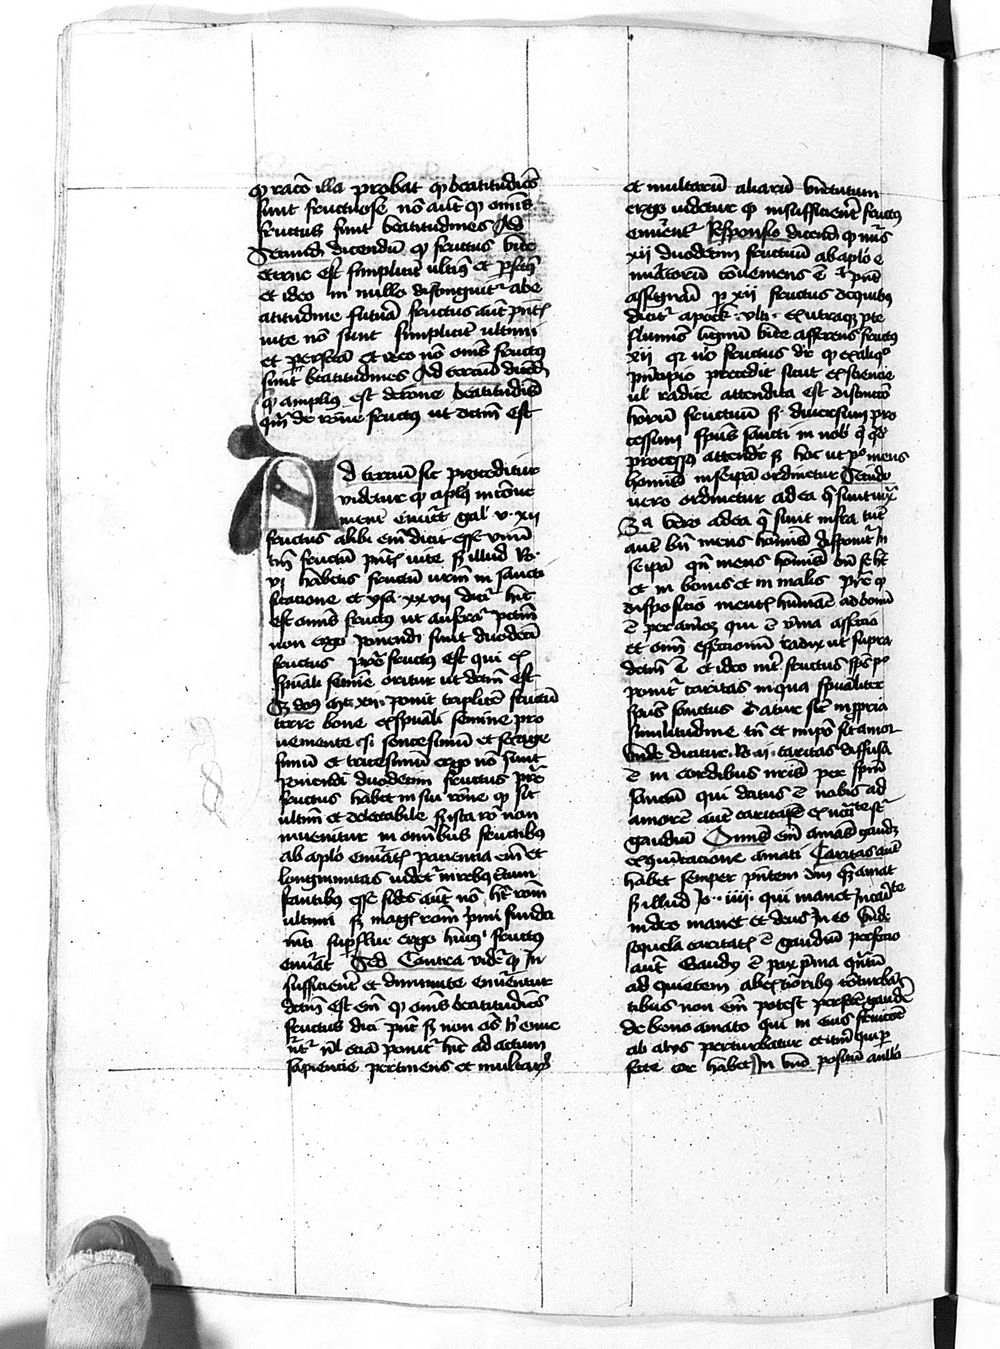 qp racōe illa probat qp beatitudiēs
sunt fructuose nō aūt qp omēs
fructus sunt beatitudines Ad
Secundū dicendū qp fructus vite
eterne est simpliciter ultimꝰ et p̄fectꝰ
et ideo in nullo distinguitur a be
atitudine futura fructus aūt pn̄tis
vite nō sunt simpliciter ultimi
et perfecti et ideo nō omēs fructus
sunt beatitudines Ad terciū dicend
qp amplius est de rōne beatitudīs
qm̄ de rōne fructꝰ ut dictum est
Ad terciū sic proceditur
videtur qp aplūs inconve
nient̄ enum̄et gal v xii
fructus alibi em̄ dicit esse unū
tm̄ fructū pn̄tis vite s illud Ro
vi habetis fructū vr̄m in sancti
ficacione et ysa xxvii dicit̄ hic
est omīs fructꝰ ut auferat̄ pctm̄
non ergo ponendi sunt duodecī
fructus pret̄ fructꝰ est qui ex
spūali semīe oritur ut dctm̄ est
Sz dns mt xiii ponit triplicē fructū
terre bone ex spūali semine pro
veniente sz centesimū et sexage
simū et tricesimū ergo nō sunt
ponendi duodecim fructus pret̄
fructus habet in sui rōne qp sit
ultimū et delectabile sz ista rō non
invenitur in omībus fructibus
ab aplo enūatis paciencia em̄ et
longinimitas videtur in rebus tristi
stantibus esse fides aūt nō ht̄ rōm
ultimi sz magis rōm primi funda
mti superflue ergo hmoī fructus
enūat Sed Contra videt̄ qp in
sufficient̄ et diminute enūentur
dictm̄ est em̄ qp omēs beatitudīes
fructus dici pnt̄ sz non oēs hic enue
rnt̄ nl̄ etiā ponit̄ hic ad actum
sapiencie pertinens et multarū
et multarū aliarū virtutum
ergo videtur qp insufficient̄ fructus
enūent̄ Responsio dicend qp nūs
xii duodecim fructuū ab aplo e
nuatorū conveniens ē et pn̄t
assignari p xii fructus de quibus
dicit̄ apock ult̄ ex utraqz p̄te
fluminis lignū vite afferens fructus
xii qz vō fructus dr̄ qp ex aliqo
pn̄cipio procedit sicut ex semine
ul radice attendita est distinctō
horū fructuū s diversum pro
cessum spūs sancti in nob q qd
processus attendit̄ s hoc ut po mens
hominis in seipā ordinetur Secundo
vero ordinetur ad ea q sunt iuxt
3a vero ad ea q sunt infra tūc
aūt bn̄ mens hominis disponit̄ in
seipā qn̄ mens hominis bn̄ se ht̄
et in bonis et in malis prīa qp
disposicio mentis humāe ad bonū
ē per amorē qui ē prima affectio
et omīū affectionū radix ut supra
dctm̄ ē et ideo int̄ fructus spūs po
ponit̄ caritas in qua spūaliter
spūs sanctus datur sic in propria
similitudine cū et ip̄e sit amor
Unde dicitur Ro v caritas diffusa
ē in cordibus nr̄is per spm̄
sanctū qui datus ē nobis ad
amorē aūt caritatis ex ncc̄e seqr̄
gaudiū Omnis em̄ amās gaudz
ex cōiunctione amati Caritas aūt
habet semper pn̄tem dm̄ qm̄ amat
s illud Jo iiii qui manet in cari te
in deo manet et deus in eo Unde
sequela caritatis ē gaudiū perfectio
aūt Gaudii ē pax prima qntū
ad quietem ab exterioribus cōturban̄
tibus non em̄ potest perfecte gaudē
de bono amato qui in eius fruicōe
ab aliis perturbatur et itm̄ qui per
fecte cor habet in uno positum a nullo